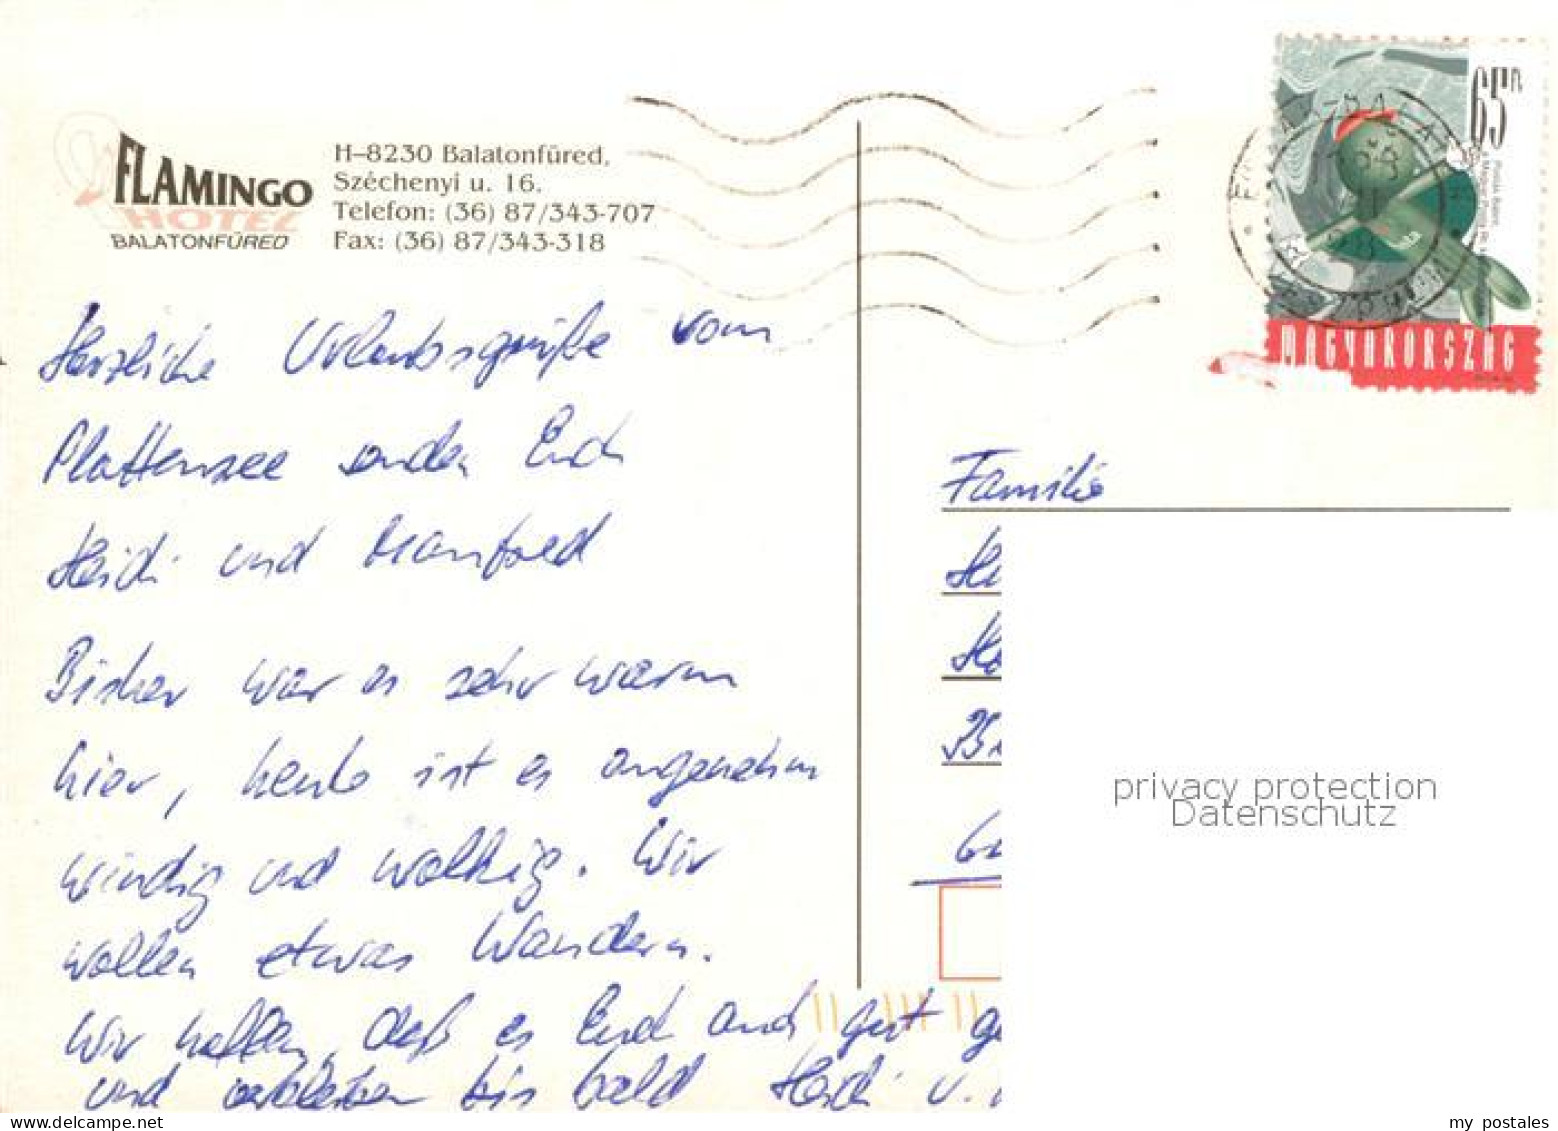 FLAMINGO
HOTEL
BALATONFÜRED
H-8230 Balatonfüred,
Széchenyi u. 16.
Telefon: (36) 87/343-707
Fax: (36) 87/343-318
65 Ft
MAGYARORSZÁG
Herzliche Urlaubsgrüße vom
Plattensee senden Euch
Heidi und Manfred
Bisher war es sehr warm
hier, heute ist es angenehm
windig und wolkig. Wir
wollen etwas Wandern.
Wir hoffen, daß es Euch auch gut
und verbleiben bis bald Heidi u.
Familie
privacy protection
Datenschutz
my postales